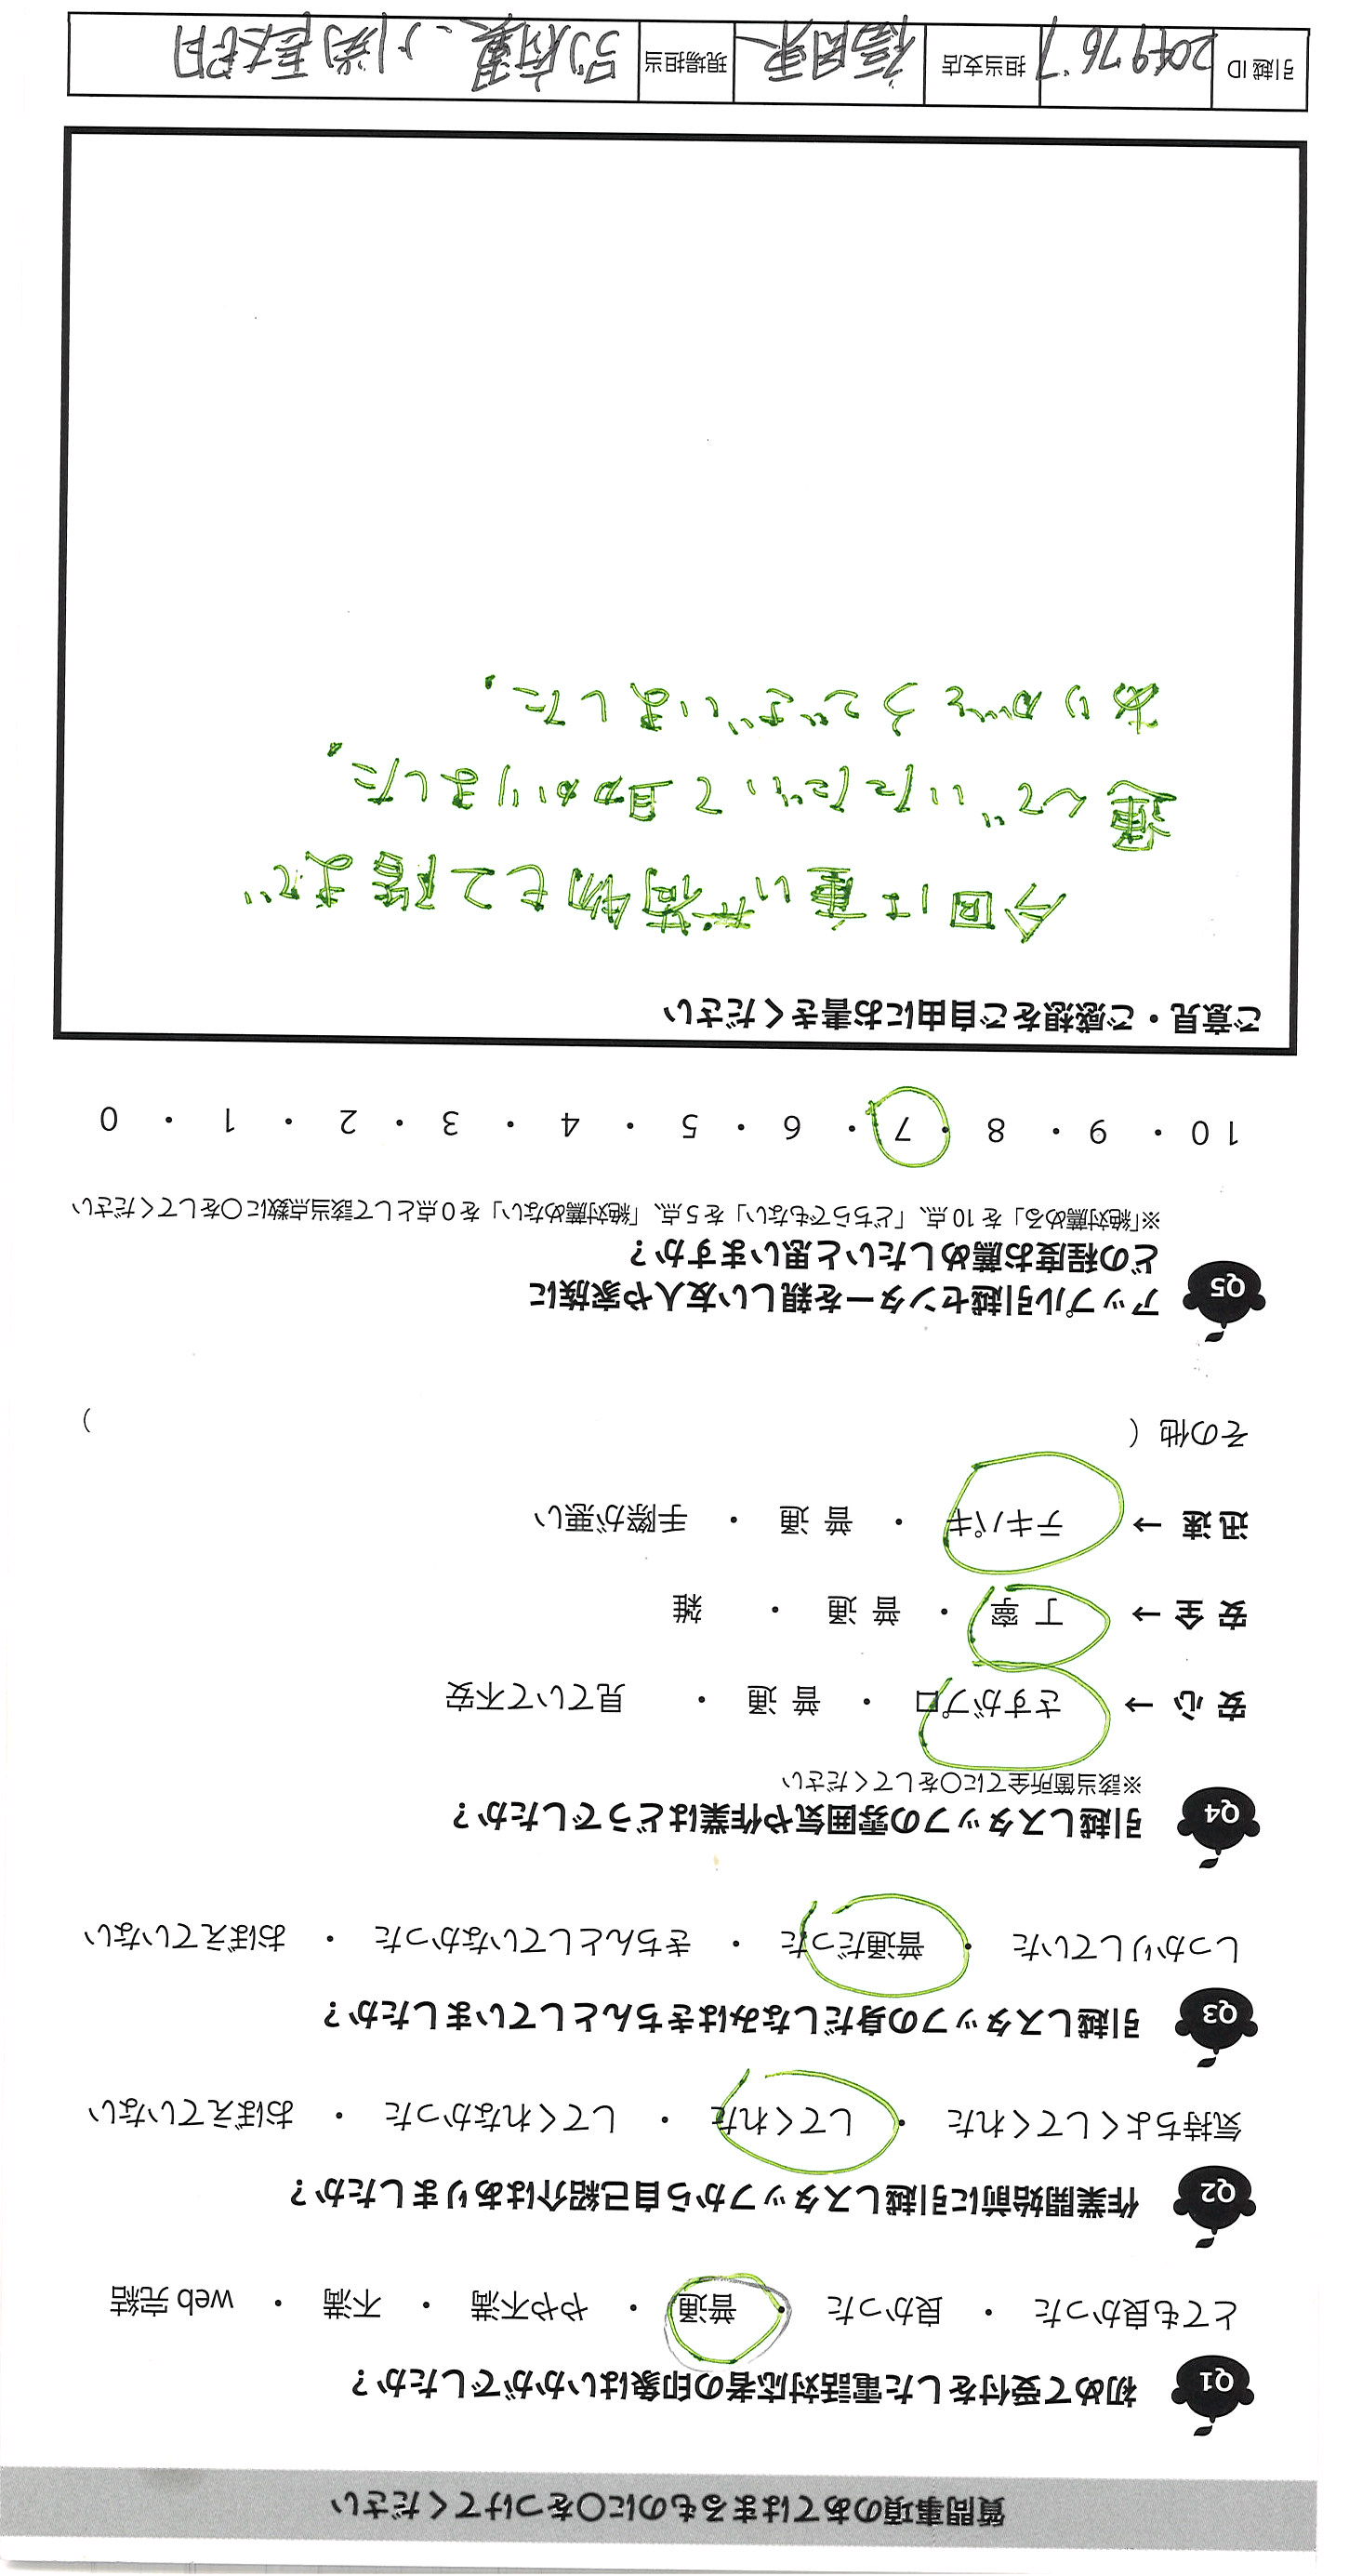 質問事項のあてはまるものに〇をつけてください
Q1 初めて受付をした電話対応者の印象はいかがでしたか？
とても良かった ・ 良かった ・ 普通 ・ やや不満 ・ 不満 ・ web 完結
Q2 作業開始前に引越しスタッフから自己紹介はありましたか？
気持ちよくしてくれた ・ してくれた ・ してくれなかった ・ おぼえていない
Q3 引越しスタッフの身だしなみはきちんとしていましたか？
しっかりしていた ・ 普通だった ・ きちんとしていなかった ・ おぼえていない
Q4 引越しスタッフの雰囲気や作業はどうでしたか？
※該当箇所全てに〇をしてください
安 心 → さすがプロ ・ 普 通 ・ 見ていて不安
安 全 → 丁 寧 ・ 普 通 ・ 雑
迅 速 → テキパキ ・ 普 通 ・ 手際が悪い
その他（ ）
Q5 アップル引越センターを親しい友人や家族に
どの程度お薦めしたいと思いますか？
※｢絶対薦める」を 10 点、「どちらでもない」を 5 点、「絶対薦めない」を 0 点として該当点数に〇をしてください
10 ・ 9 ・ 8 ・ 7 ・ 6 ・ 5 ・ 4 ・ 3 ・ 2 ・ 1 ・ 0
ご意見・ご感想をご自由にお書きください
今回は重い荷物を2階まで
運んでいただいて助かりました。
ありがとうございました。
引越 ID 2049767 担当支店 福岡東 現場担当 別府翼、小満